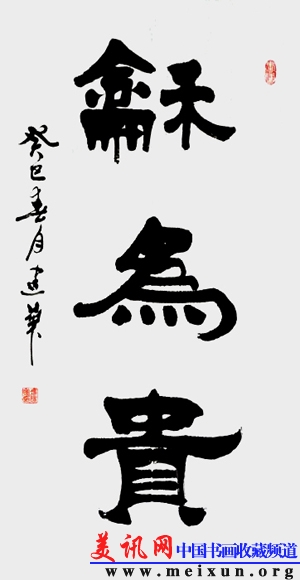 龢為貴
癸巳春月建華
美讯网 中国书画收藏频道
www.meixun.org